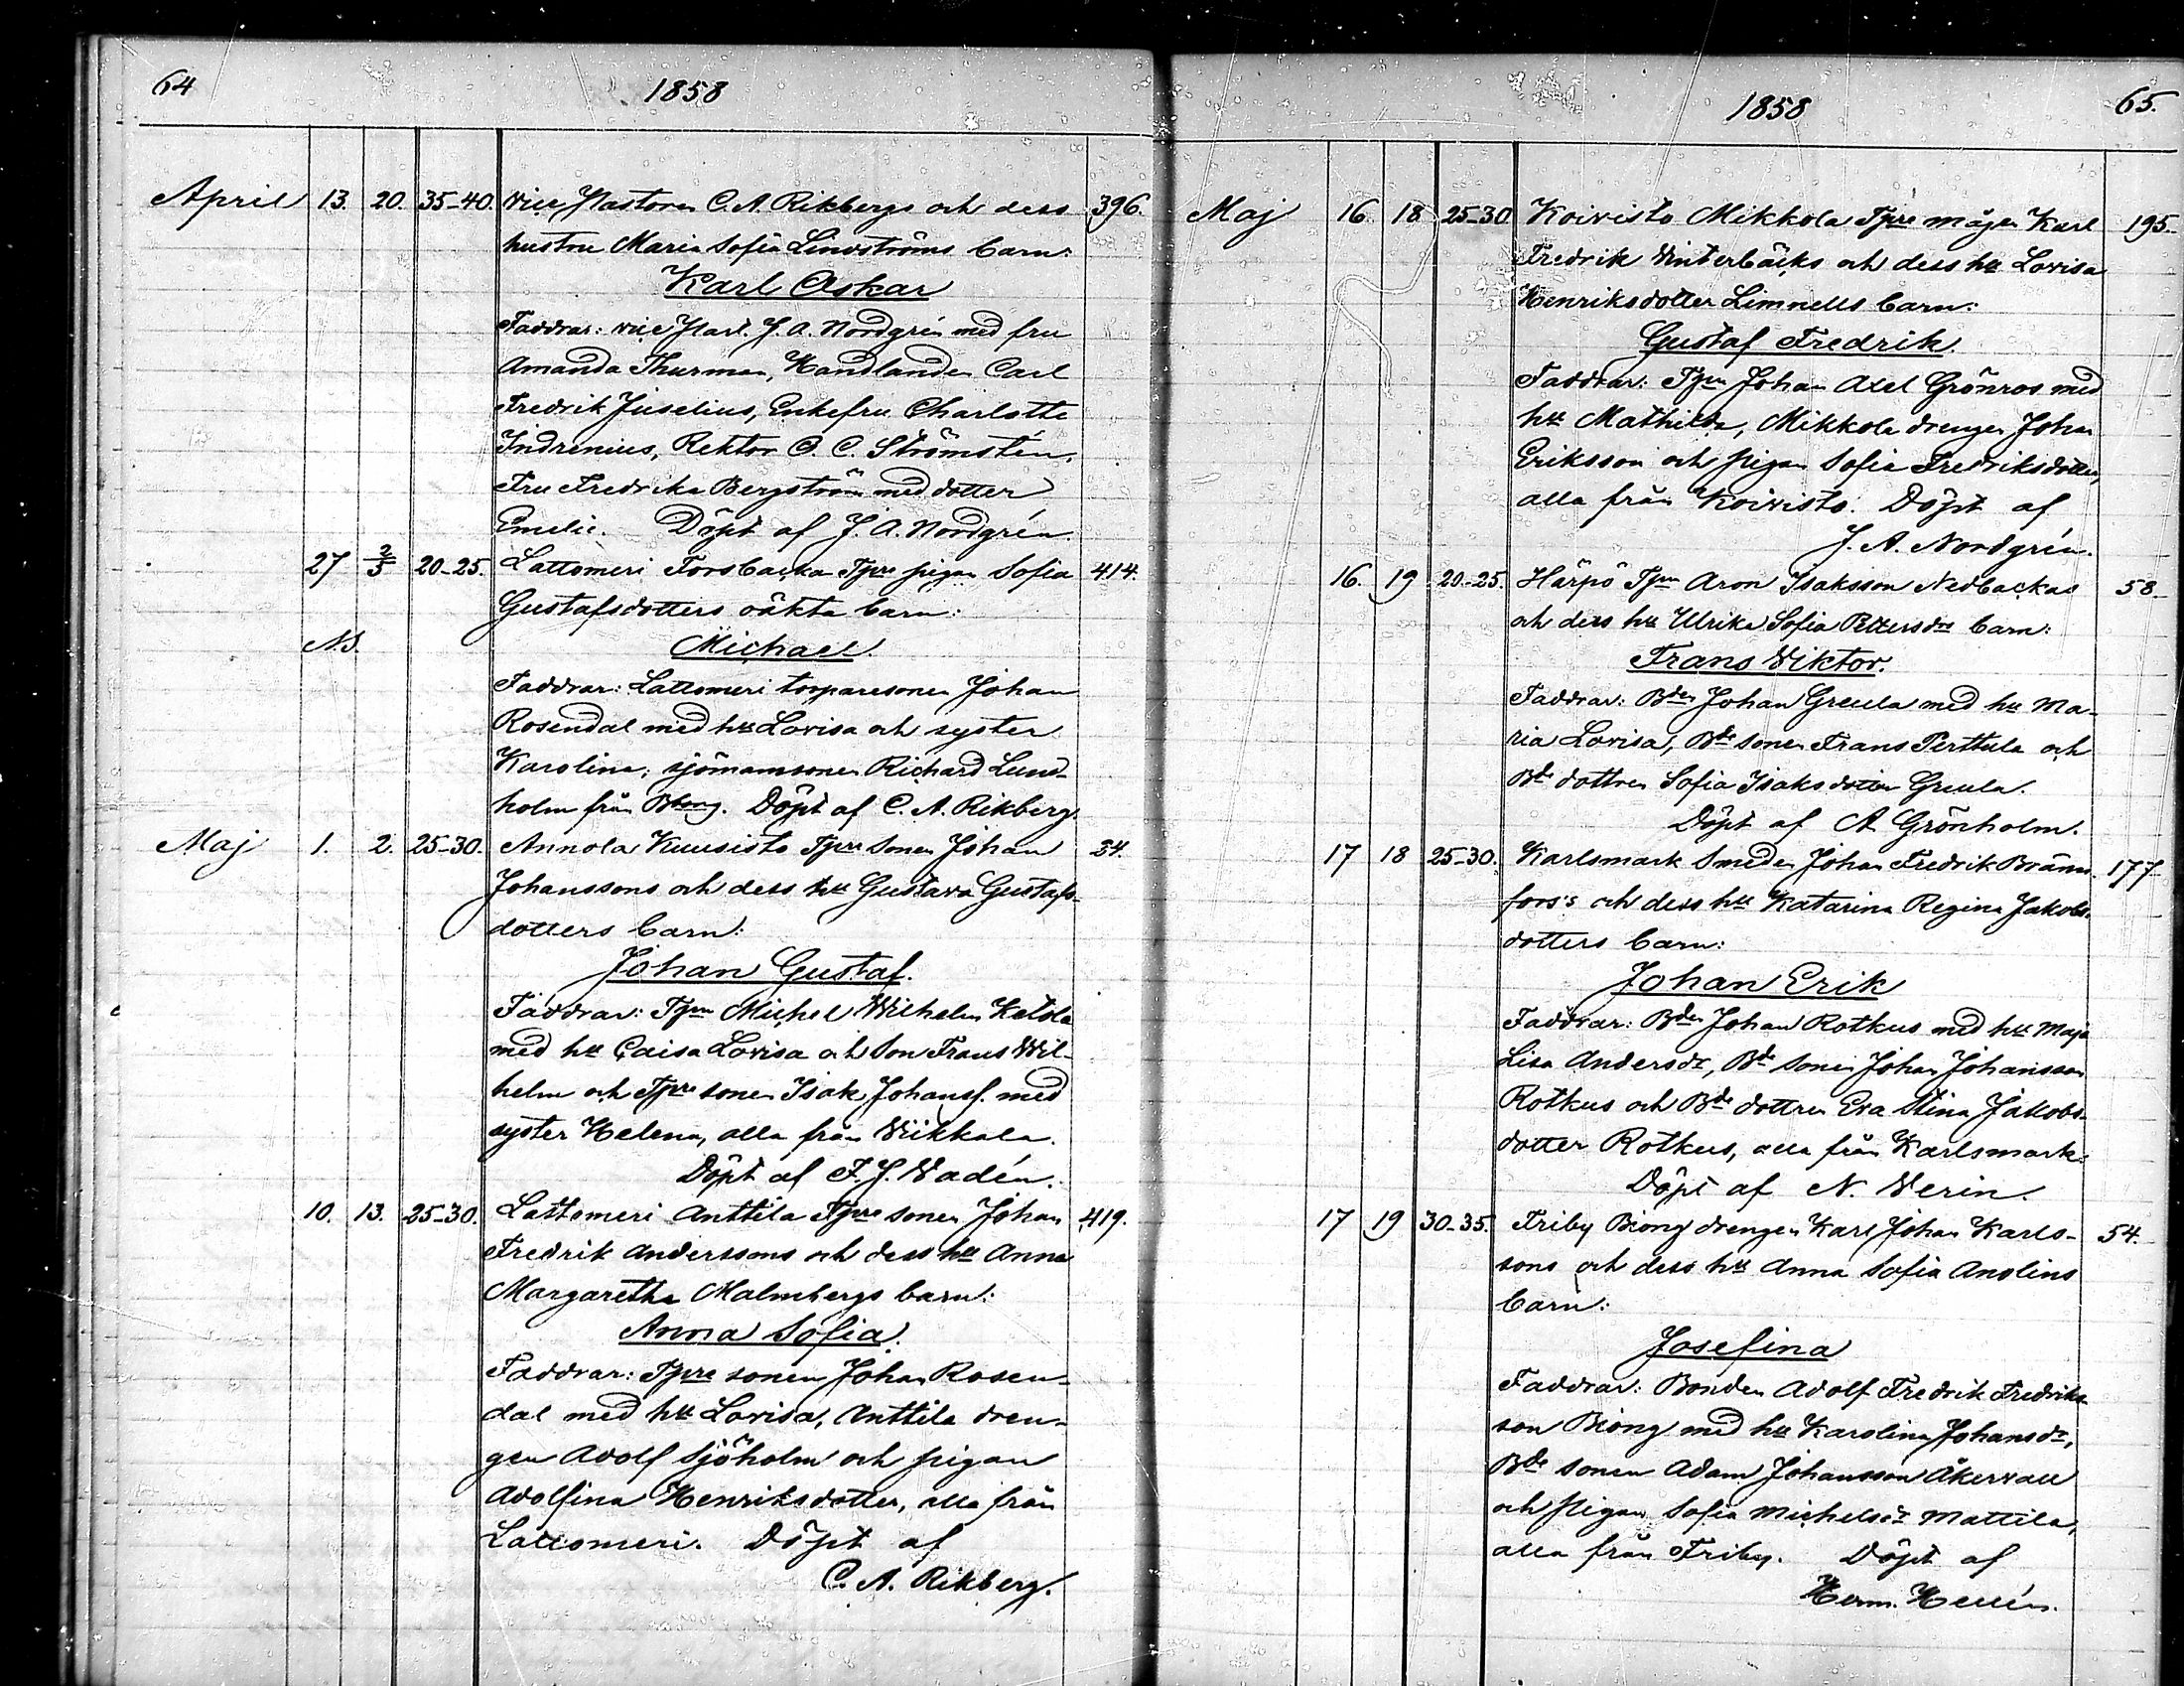 64
1858
April 13. 20. 35-40. vice Pastoren C. A. Rikbergs och dess 396.
hustru Maria Sofia Lindströms barn:
Karl Oskar
Faddrar: vice Past. J. A. Nordgrén med fru
Amanda Thurman, Handlanden Carl
Fredrik Juselius, Enkefru Charlotte
Indrenius, Rektor C. C. Strömstén,
Fru Fredrika Bergström med dotter
Emelie. Döpt af J. A. Nordgrén.
27 2/5 20-25. Lattomeri Forsbacka Tpre pigan Sofia 414.
Gustafsdotters oäkta barn:
N.S. Michael.
Faddrar: Lattomeri torparesonen Johan
Rosendal med hu Lovisa och syster
Karolina, sjömansonen Richard Lund-
holm från Bborg. Döpt af C. A. Rikberg.
Maj 1. 2. 25-30. Annola Kuusisto Tpre Sonen Johan 34.
Johanssons och dess hu Gustava Gustafs-
dotters barn:
Johan Gustaf.
Faddrar: Tpn Michel Wilhelm Ketola
med hu Caisa Lovisa och Son Frans Wil-
helm och Tpre sonen Isak Johanss. med
syster Helena, alla från Wiikkala.
Döpt af F. J. Wadén.
10. 13. 25-30. Lattomeri Anttila Tpre sonen Johan 419.
Fredrik Anderssons och dess hu Anna
Margaretha Malmbergs barn:
Anna Sofia.
Faddrar: Tpre sonen Johan Rosen-
dal med hu Lovisa, Anttila dren-
gen Adolf Sjöholm och pigan
Adolfina Henriksdotter, alla från
Lattomeri. Döpt af
C. A. Rikberg.
1858
65.
Maj 16. 18 25-30 Koivisto Mikkola Tpre mågen Karl 195.
Fredrik Winterbäcks och dess hu Lovisa
Henriksdotter Limnells barn:
Gustaf Fredrik.
Faddrar: Tpn Johan Axel Grönros med
hu Mathilda, Mikkola drengen Johan
Eriksson och pigan Sofia Fredriksdotter,
alla från Koivisto. Döpt af
J. A. Nordgrén.
16. 19 20-25. Härpö Tpn Aron Isaksson Nedbackas 58.
och dess hu Ulrika Sofia Pettersdrs barn:
Frans Wiktor.
Faddrar: Bden Johan Greula med hu Ma-
ria Lovisa, Bde sonen Frans Perttula och
Bde dottren Sofia Isaksdotter Greula.
Döpt af A. Grönholm.
17 18 25-30. Karlsmark Smeden Johan Fredrik Bränn- 177
fors's och dess hu Katarina Regina Jakobs-
dotters barn:
Johan Erik
Faddrar: Bden Johan Rotkus med hu Maja
Lisa Andersdr, Bde sonen Johan Johansson
Rotkus och Bde dottren Eva Stina Jakobs-
dotter Rotkus, alla från Karlsmark.
Döpt af N. Werin.
17 19 30-35. Friby Biong drengen Karl Johan Karls- 54.
sons och dess hu Anna Sofia Anolins
barn:
Josefina
Faddrar: Bonden Adolf Fredrik Fredriks-
son Biong med hu Karolina Johansdr,
Bde sonen Adam Johansson Åkervall
och pigan Sofia Michelsdr Mattila,
alla från Friby. Döpt af
Herm. Hellén.